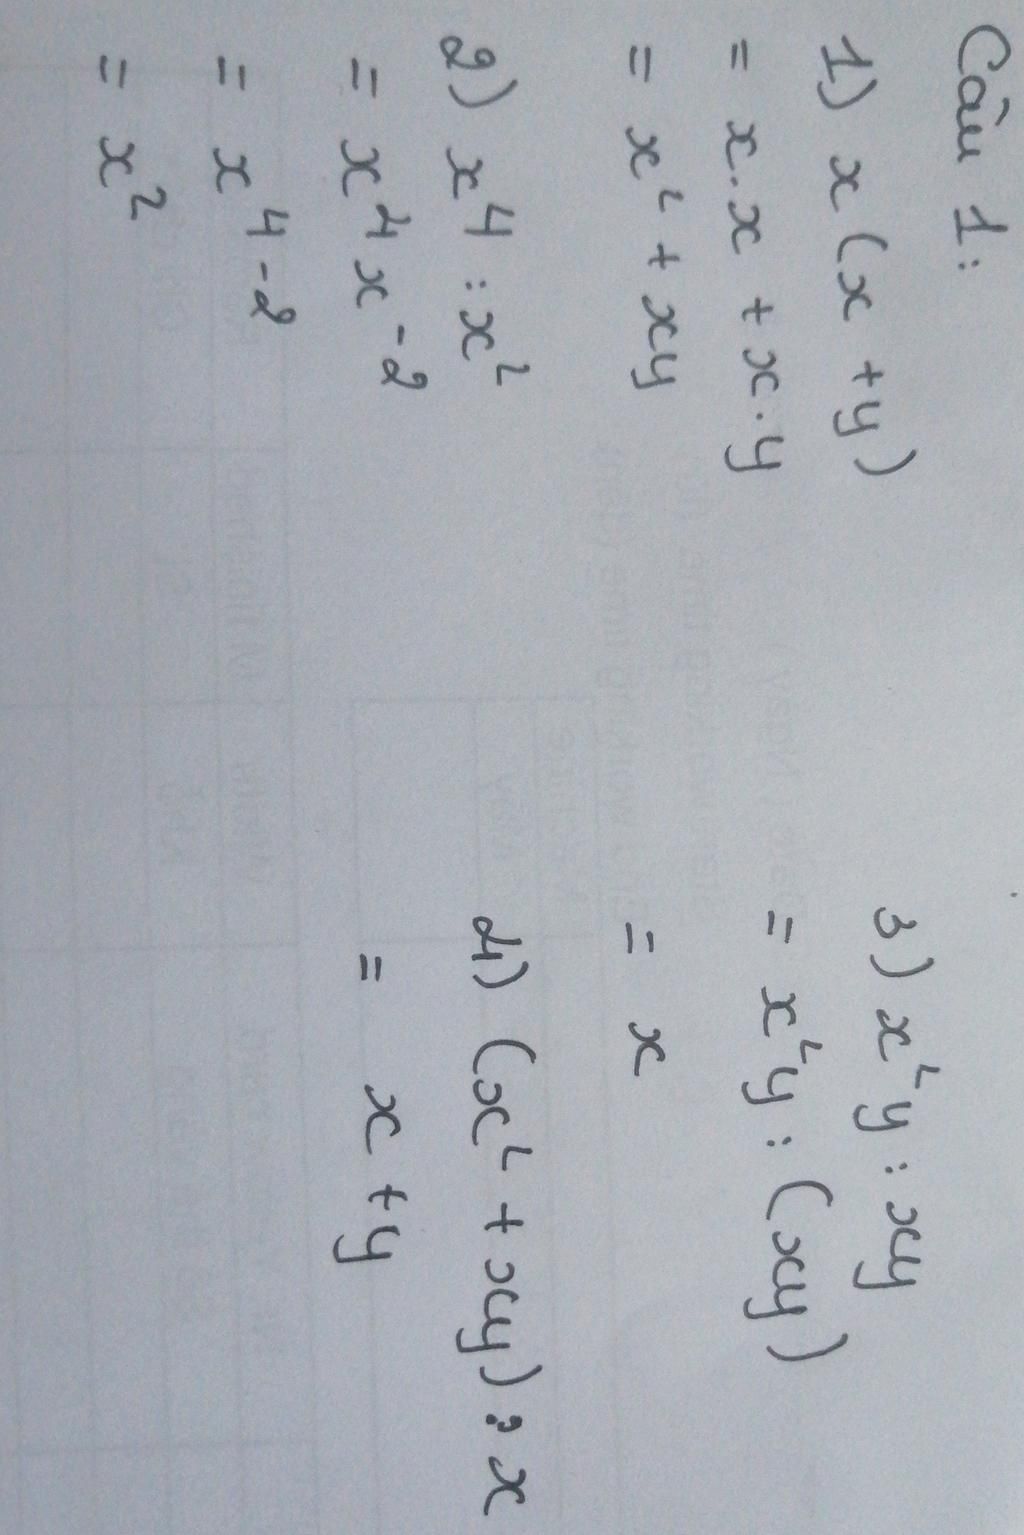 Câu 1:
1) x(x+y)
= x.x + x.y
= x² + xy
2) x⁴ : x²
= x⁴x⁻²
= x⁴⁻²
= x²
3) x²y : xy
= x²y : (xy)
= x
4) (x² + xy) : x
= x+y